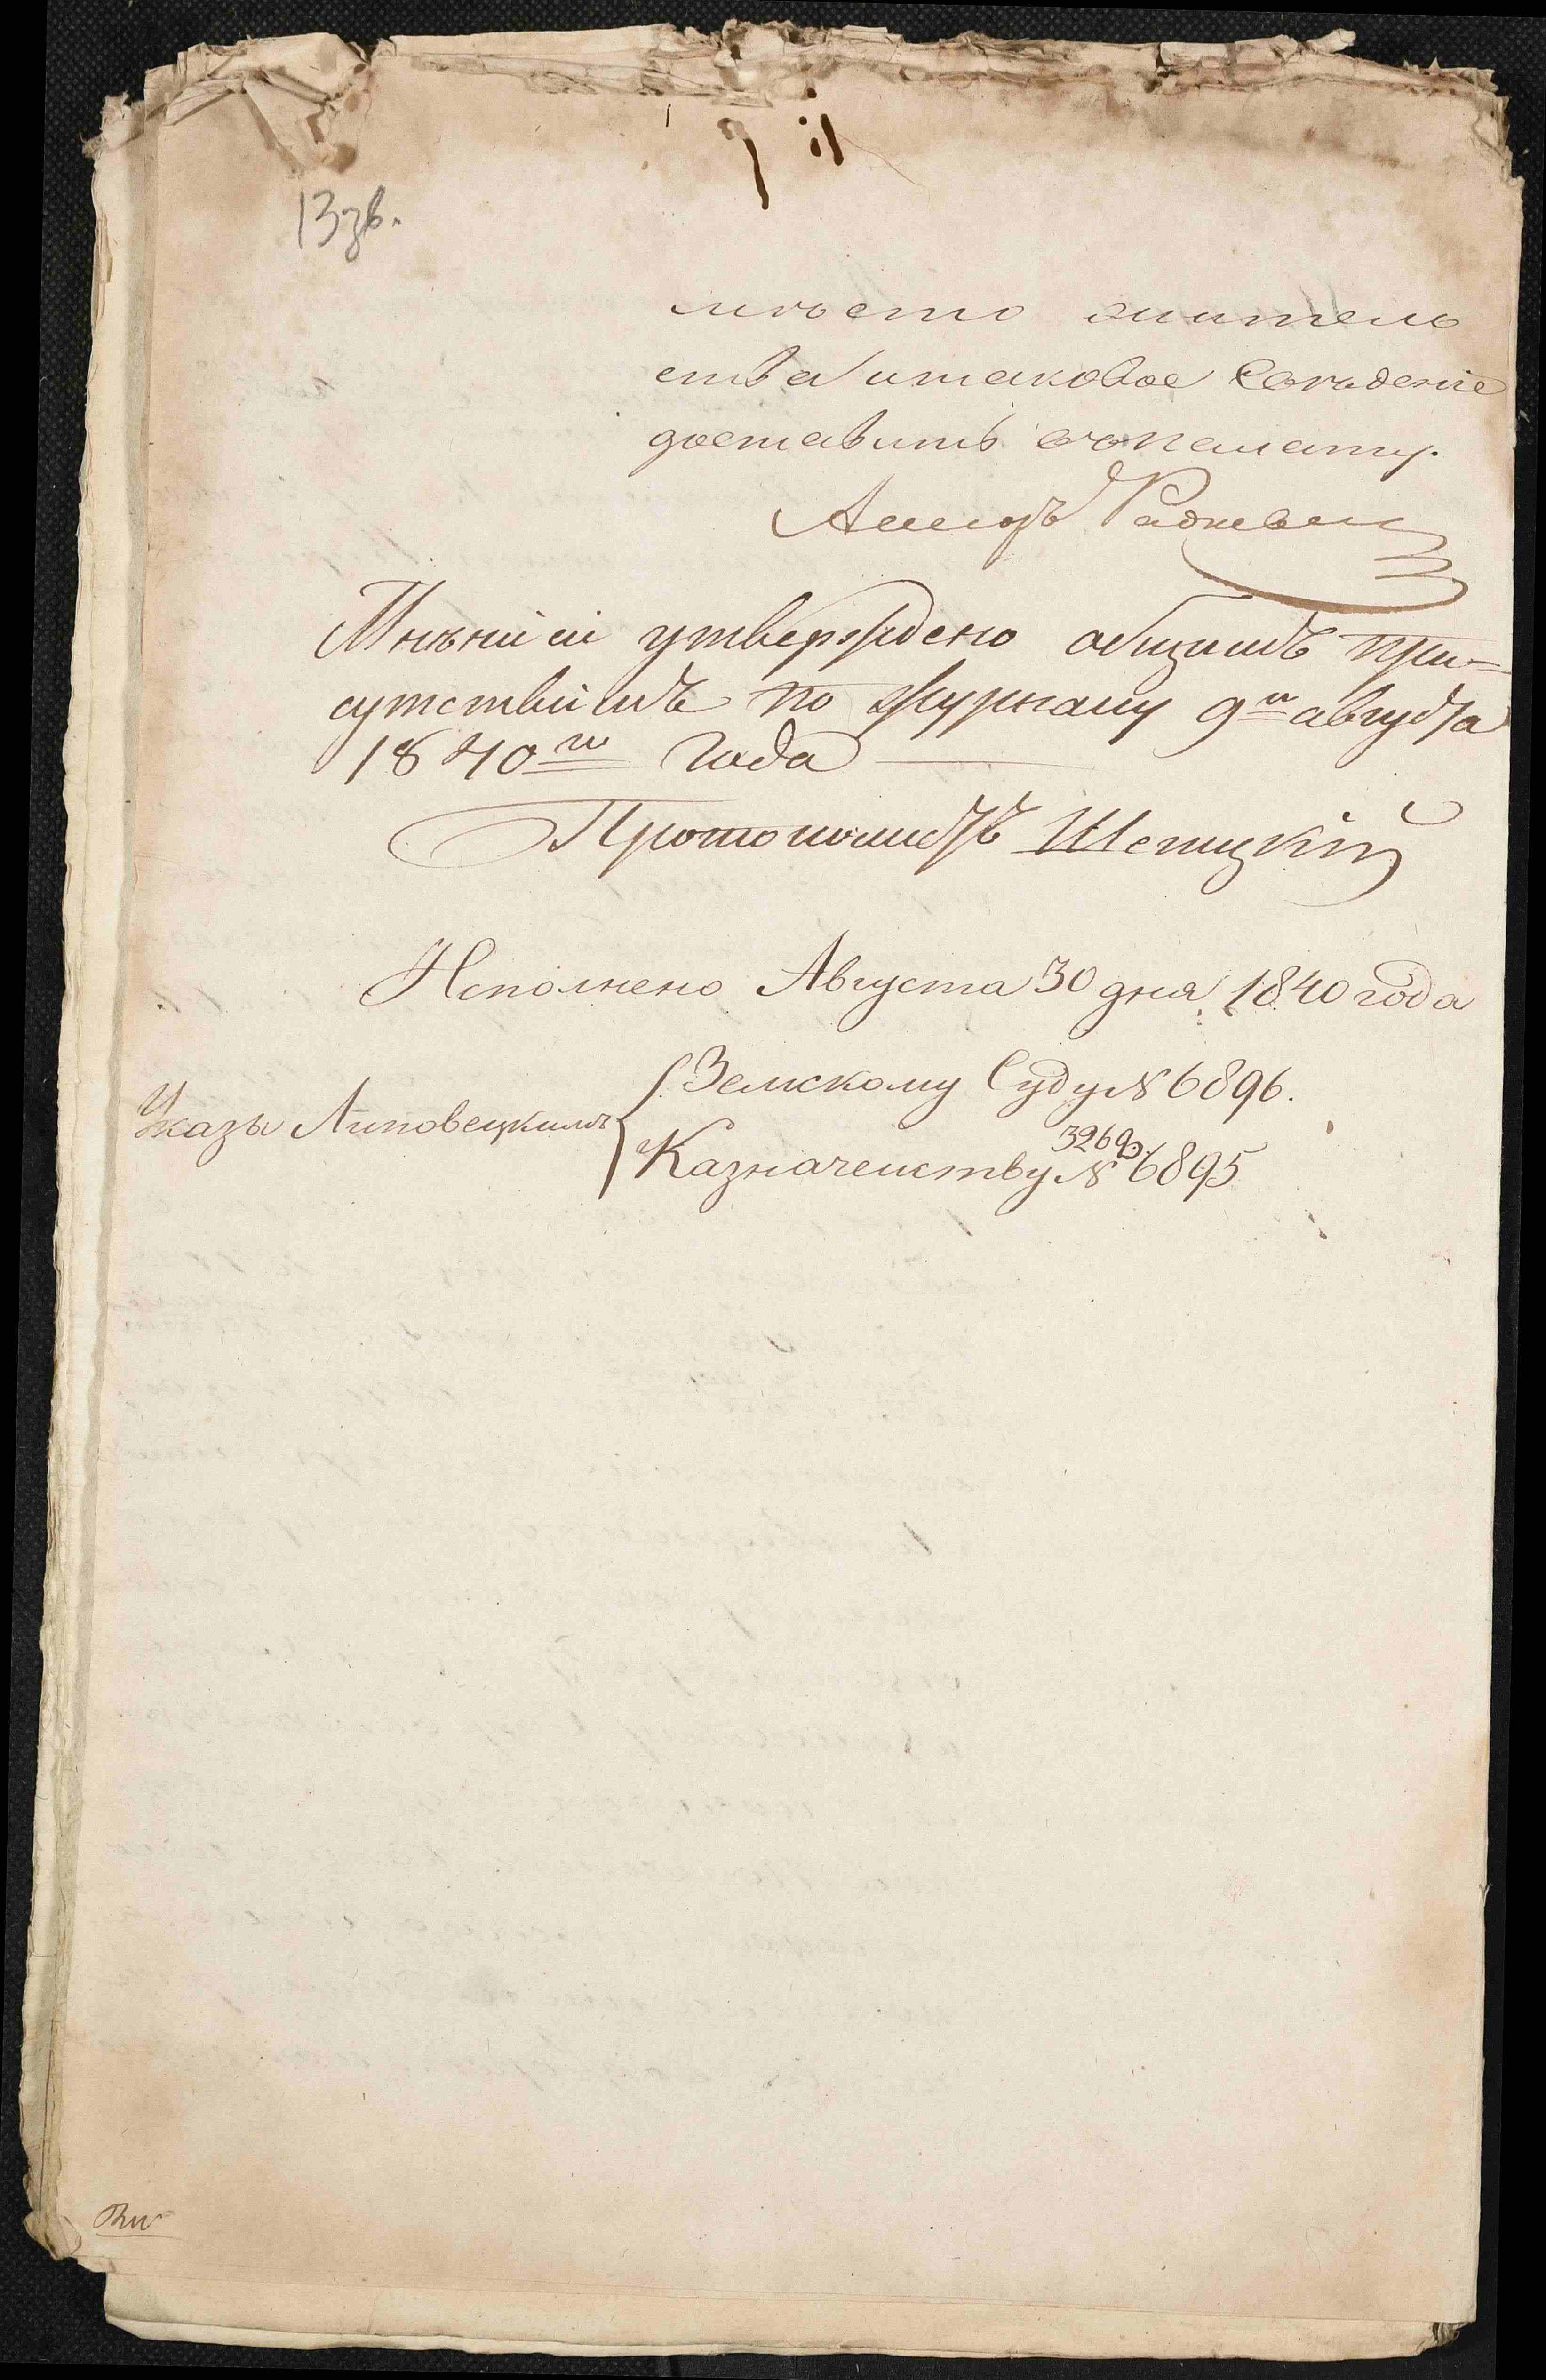 13зв.
мѣсто жительо
ства итаковое Сведѣніе
доставить въ палату.
Асессоръ Радкевич
Мнѣніе утверждено общимъ при=
сутствіемъ по журналу 9го августа
1840го года
Протоколистъ Шепицкій
Исполнено Августа 30 дня 1840 года
Указы Липовецкимъ
Земскому Суду № 6896.
3269
Казначейству № 6895